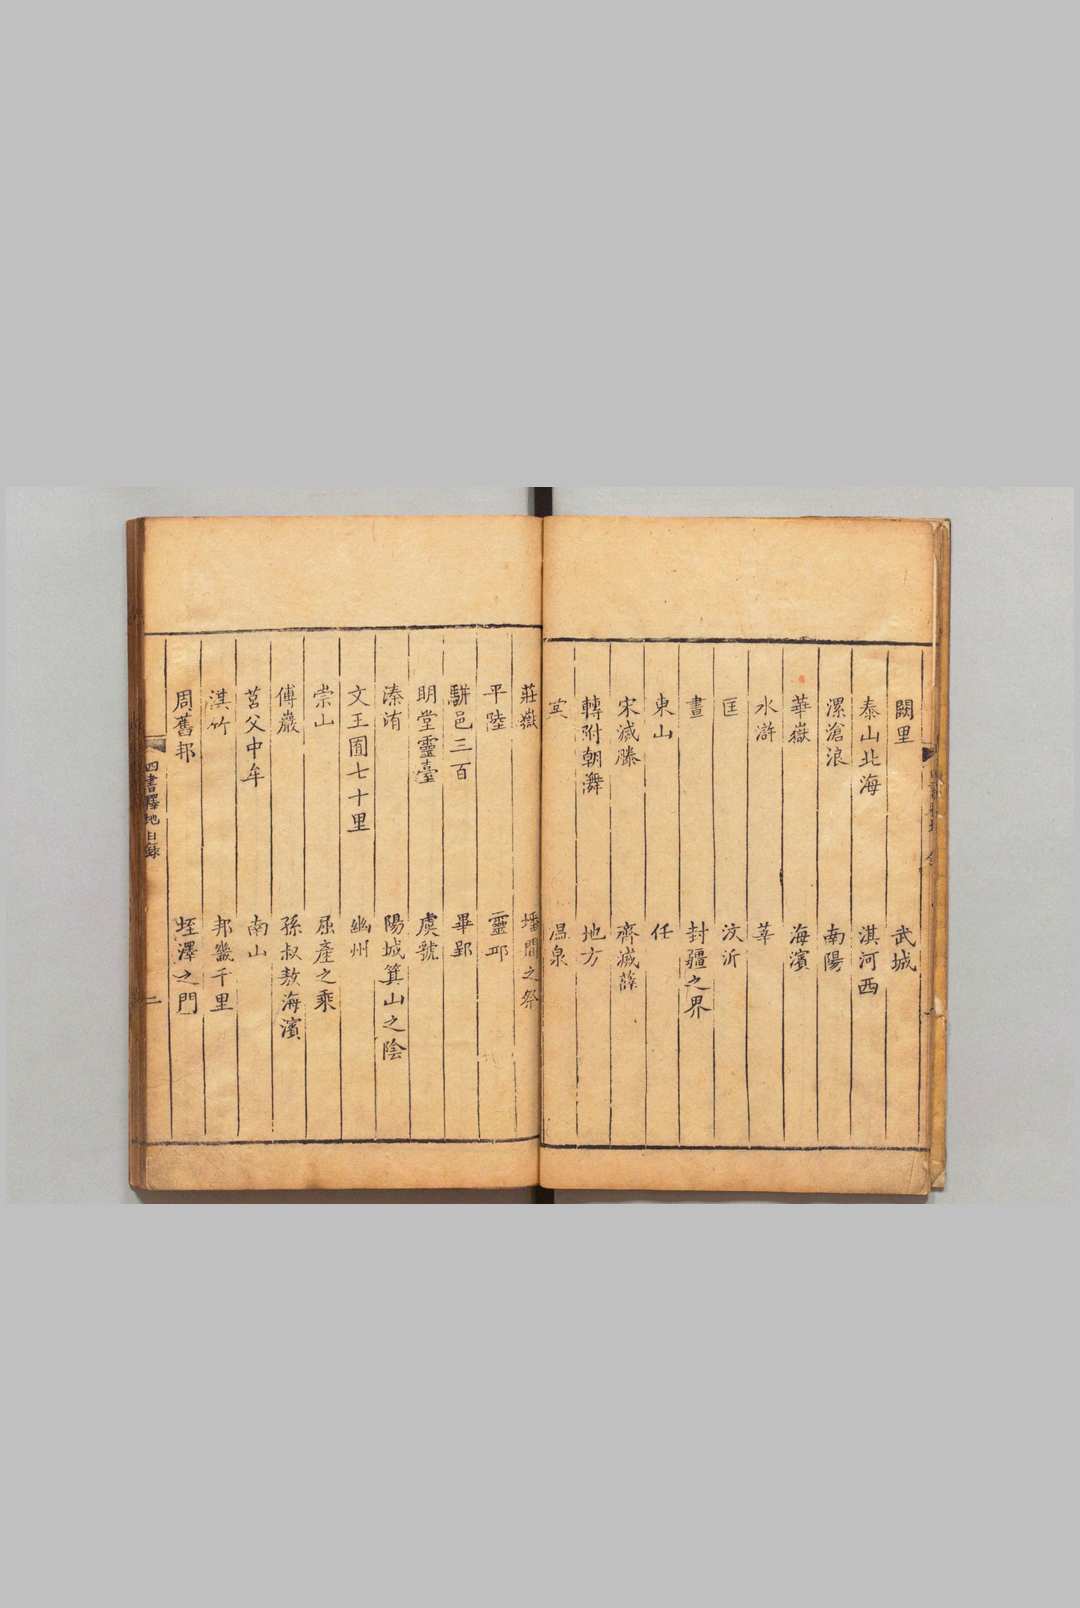 闕里　武城
泰山北海　淇河西
漯滄浪　南陽
華嶽　海濱
水滸　莘
匡　汶沂
晝　封疆之界
東山　任
宋滅滕　齊滅薛
轉附朝儛　地方
温泉
莊嶽　墦間之祭
平陸　靈邱
駢邑三百　畢郢
明堂靈臺　虞虢
溱洧　陽城箕山之陰
文王囿七十里　幽州
崇山　屈產之乘
傅巖　孫叔敖海濱
莒父中牟　南山
淇竹　邦畿千里
周舊邦　垤澤之門
四書釋地目錄　二